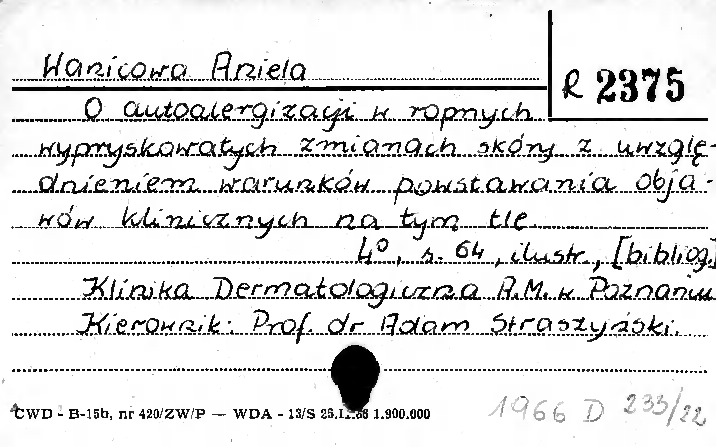 Wanicowa Aniela
R 2375
O autoalergizacji w ropnych
wypryskowatych zmianach skóry z uwzglę-
dnieniem warunków powstawania obja-
wów klinicznych na tym tle
4°, s. 64, ilustr., [bibliog.]
Klinika Dermatologiczna A.M. w Poznaniu
Kierownik: Prof. dr Adam Straszyński.
CWD - B-15b, nr 420/ZW/P — WDA - 13/S 1.900.000
1966 D 233/22